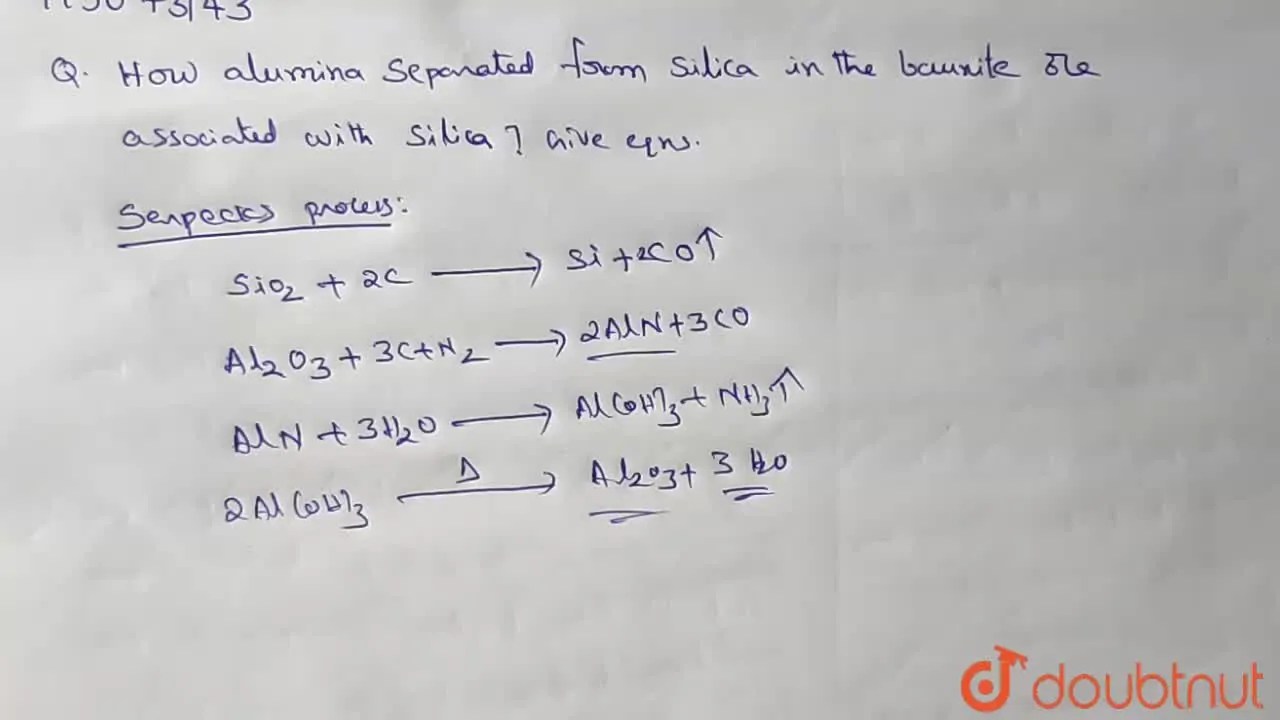 Q. How alumina separated form silica in the bauxite ore
associated with silica? Give eqns.
Serpecks process:
SiO2 + 2C ⟶ Si + 2CO↑
Al2O3 + 3C + N2 ⟶ 2AlN + 3CO
AlN + 3H2O ⟶ Al(OH)3 + NH3↑
2Al(OH)3 —Δ→ Al2O3 + 3H2O
doubtnut